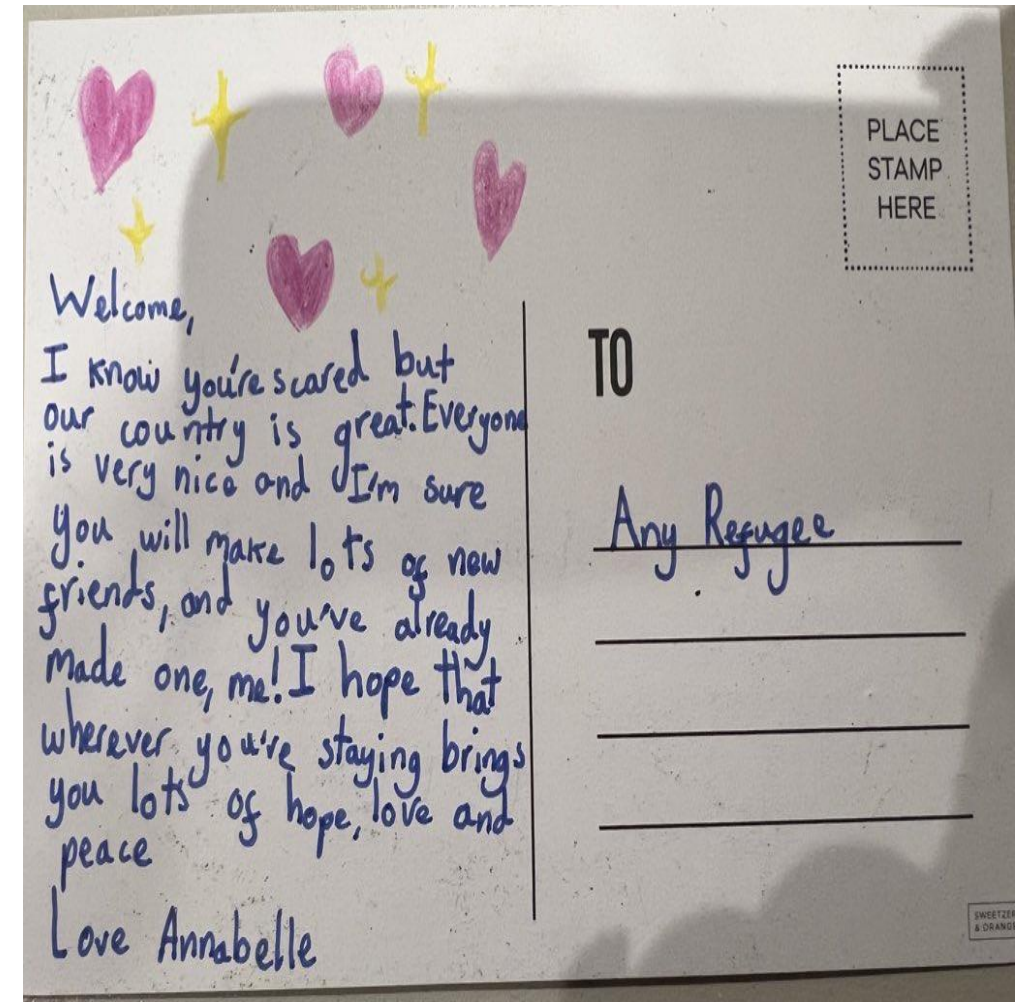 Welcome,
I know you're scared but
our country is great. Everyone
is very nice and I'm sure
you will make lots of new
friends, and you've already
made one, me! I hope that
wherever you're staying brings
you lots of hope, love and
peace
Love Annabelle
PLACE
STAMP
HERE
TO
Any Refugee
& ORANGE